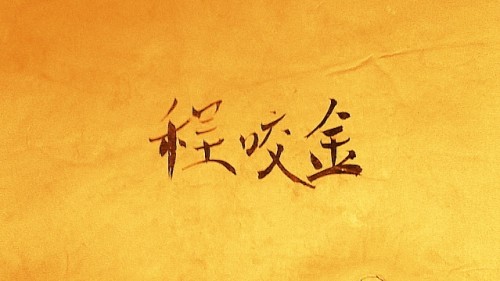 程咬金